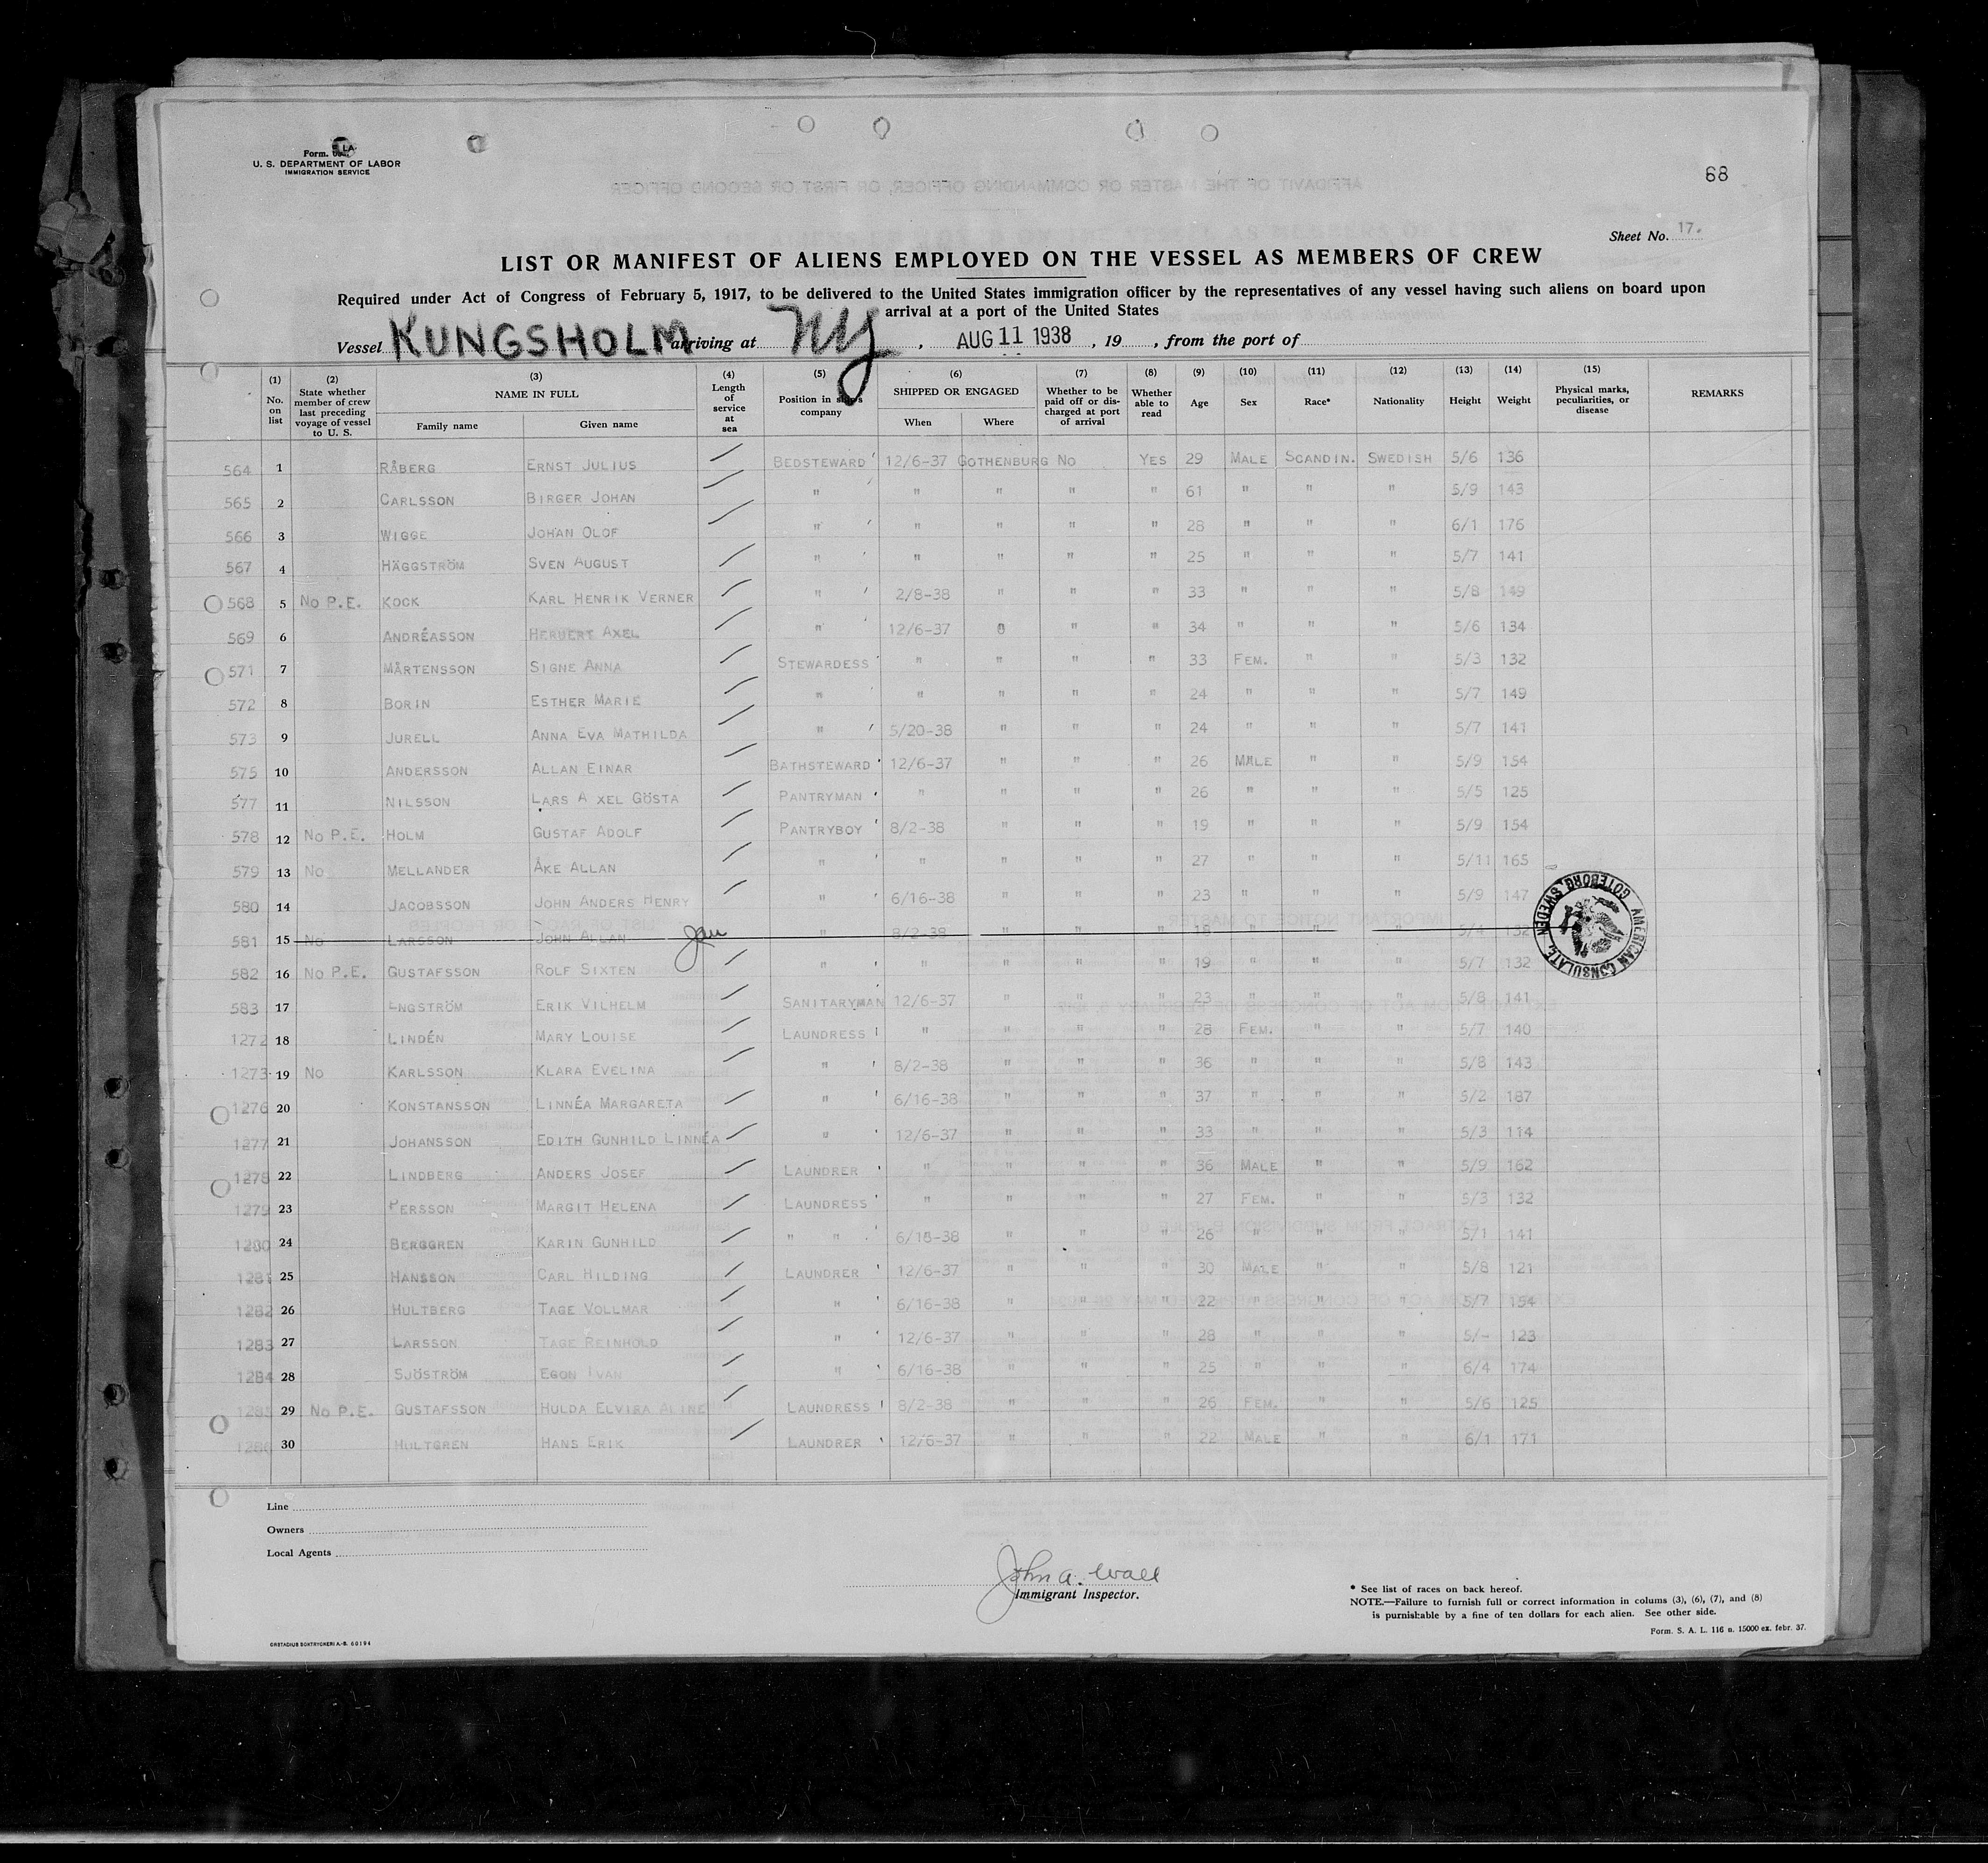 Form.
U. S. DEPARTMENT OF LABOR
IMMIGRATION SERVICE
68
Sheet No. 17.
LIST OR MANIFEST OF ALIENS EMPLOYED ON THE VESSEL AS MEMBERS OF CREW
Required under Act of Congress of February 5, 1917, to be delivered to the United States immigration officer by the representatives of any vessel having such aliens on board upon
arrival at a port of the United States
Vessel KUNGSHOLM arriving at NY, AUG 11 1938, 19 , from the port of
(1) No. on list (2) State whether member of crew last preceding voyage of vessel to U. S. (3) NAME IN FULL Family name Given name (4) Length of service at sea (5) Position in ship's company (6) SHIPPED OR ENGAGED When Where (7) Whether to be paid off or discharged at port of arrival (8) Whether able to read (9) Age (10) Sex (11) Race* (12) Nationality (13) Height (14) Weight (15) Physical marks, peculiarities, or disease REMARKS
564 1 RÅBERG ERNST JULIUS BEDSTEWARD 12/6-37 GOTHENBURG NO YES 29 MALE SCANDIN. SWEDISH 5/6 136
565 2 CARLSSON BIRGER JOHAN " " " " " 61 " " " 5/9 143
566 3 WIGGE JOHAN OLOF " " " " " 28 " " " 6/1 176
567 4 HÄGGSTRÖM SVEN AUGUST " " " " " 25 " " " 5/7 141
568 5 No P.E. KOCK KARL HENRIK VERNER " 2/8-38 " " " 33 " " " 5/8 149
569 6 ANDRÉASSON HERBERT AXEL " 12/6-37 " " " 34 " " " 5/6 134
571 7 MÅRTENSSON SIGNE ANNA STEWARDESS " " " " 33 FEM. " " 5/3 132
572 8 BORIN ESTHER MARIE " " " " " 24 " " " 5/7 149
573 9 JURELL ANNA EVA MATHILDA " 5/20-38 " " " 24 " " " 5/7 141
575 10 ANDERSSON ALLAN EINAR BATHSTEWARD 12/6-37 " " " 26 MALE " " 5/9 154
577 11 NILSSON LARS A XEL GÖSTA PANTRYMAN " " " " 26 " " " 5/5 125
578 12 No P.E. HOLM GUSTAF ADOLF PANTRYBOY 8/2-38 " " " 19 " " " 5/9 154
579 13 No MELLANDER ÅKE ALLAN " " " " " 27 " " " 5/11 165
580 14 JACOBSSON JOHN ANDERS HENRY " 6/16-38 " " " 23 " " " 5/9 147
581 15 No LARSSON JOHN ALLAN " 8/2-38 " " " " " "
582 16 No P.E. GUSTAFSSON ROLF SIXTEN " " " " " 19 " " " 5/7 132
583 17 ENGSTRÖM ERIK VILHELM SANITARYMAN 12/6-37 " " " 23 " " " 5/8 141
1272 18 LINDÉN MARY LOUISE LAUNDRESS " " " " 28 FEM. " " 5/7 140
1273 19 No KARLSSON KLARA EVELINA " 8/2-38 " " " 36 " " " 5/8 143
1276 20 KONSTANSSON LINNÉA MARGARETA " 6/16-38 " " " 37 " " " 5/2 187
1277 21 JOHANSSON EDITH GUNHILD LINNÉA " 12/6-37 " " " 33 " " " 5/3 114
1278 22 LINDBERG ANDERS JOSEF LAUNDRER " " " " 36 MALE " " 5/9 162
1279 23 PERSSON MARGIT HELENA LAUNDRESS " " " " 27 FEM. " " 5/3 132
1280 24 BERGGREN KARIN GUNHILD " " 6/16-38 " " " 26 " " " 5/1 141
1281 25 HANSSON CARL HILDING LAUNDRER 12/6-37 " " " 30 MALE " " 5/8 121
1282 26 HULTBERG TAGE VOLLMAR " 6/16-38 " " " 22 " " " 5/7 154
1283 27 LARSSON TAGE REINHOLD " 12/6-37 " " " 28 " " " 5/- 123
1284 28 SJÖSTRÖM EGON IVAN " 6/16-38 " " " 25 " " " 6/4 174
1285 29 No P.E. GUSTAFSSON HULDA ELVIRA ALINE LAUNDRESS 8/2-38 " " " 26 FEM. " " 5/6 125
1286 30 HULTGREN HANS ERIK LAUNDRER 12/6-37 " " " 22 MALE " " 6/1 171
AMERICAN CONSULATE, GOTEBORG, SWEDEN
Line
Owners
Local Agents
John A. Wall
Immigrant Inspector.
* See list of races on back hereof.
NOTE.—Failure to furnish full or correct information in colums (3), (6), (7), and (8)
is purnishable by a fine of ten dollars for each alien. See other side.
Form. S. A. L. 116 n. 15000 ex. febr. 37.